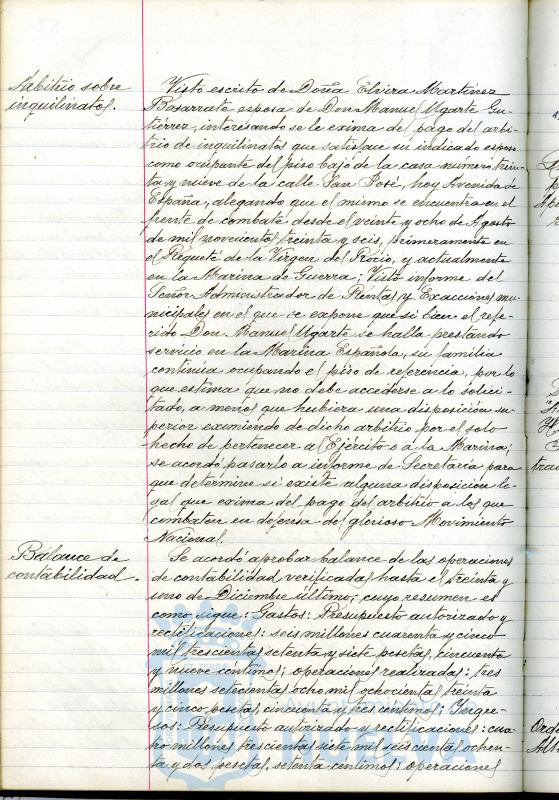 Arbitrio sobre
inquilinatos.
Visto escrito de Doña Elvira Martínez
Basarrate esposa de Don Manuel Ugarte Gu-
tiérrez, interesando se le exima del pago del arbi-
trio de inquilinatos que satisface su indicado esposo
como ocupante del piso bajo de la casa número trein-
ta y nueve de la calle San José, hoy Avenida de
España, alegando que el mismo se encuentra en el
frente de combate desde el veinte y ocho de Agosto
de mil novecientos treinta y seis, primeramente en
el Requeté de la Virgen del Rocio, y actualmente
en la Marina de Guerra; Visto informe del
Señor Administrador de Rentas y Exacciones mu-
nicipales en el que se expone que si bien el refe-
rido Don Manuel Ugarte se halla prestando
servicio en la Marina Española, su familia
continua ocupando el piso de referencia, por lo
que estima que no debe accederse a lo solici-
tado, a menos que hubiera una disposición su-
perior eximiendo de dicho arbitrio por el solo
hecho de pertenecer al Ejército o a la Marina;
se acordó pasarlo a informe de Secretaría para
que determine si existe alguna disposición le-
gal que exima del pago del arbitrio a los que
combaten en defensa del glorioso Movimiento
Nacional.
Balance de
contabilidad.
Se acordó aprobar balance de las operaciones
de contabilidad verificadas hasta el treinta y
uno de Diciembre último, cuyo resumen es
como sigue: Gastos: Presupuesto autorizado y
rectificaciones: seis millones cuarenta y cinco
mil trescientas setenta y siete pesetas, cincuenta
y nueve céntimos; operaciones realizadas: tres
millones setecientas ocho mil ochocientas treinta
y cinco pesetas, cincuenta y tres céntimos; Ingre-
sos: Presupuesto autorizado y rectificaciones: cua-
tro millones trescientas siete mil seiscientas ochen-
ta y dos pesetas, setenta céntimos; operaciones